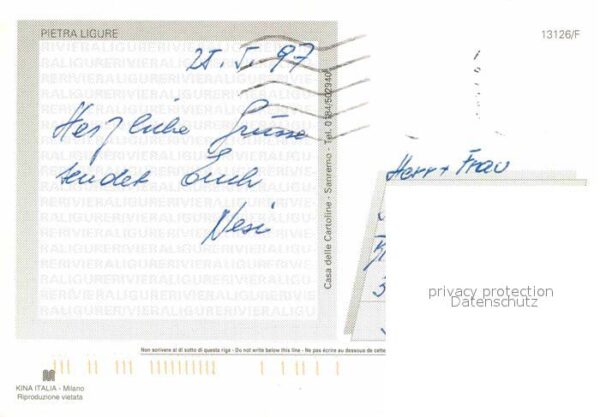 PIETRA LIGURE
13126/F
25. 5. 97
Herzliche Grüsse
sendet Euch
Vesi
Herr + Frau
Casa delle Cartoline - Sanremo - Tel. 0184/502940
privacy protection
Datenschutz
Non scrivere al di sotto di questa riga - Do not write below this line - Ne pas écrire au dessous de cette
KINA ITALIA - Milano
Riproduzione vietata